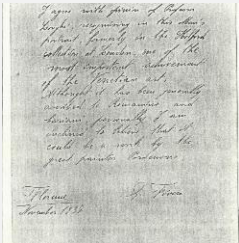 I agree with opinion of Professor
Longhi, recognising in this Man's
portrait formerly in the
collection at London, one of the
most important achievement
of the Venetian art,
Although it has been generally
ascribed to Romanino and
I am
inclined to believe that it
could be a work by the
great painter Pordenone
Florence
November 1936